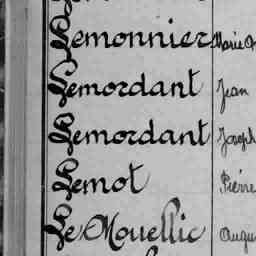 Lemonnier Marie
Lemordant Jean
Lemordant Joseph
Lemot Pierre
Le Mouellic Augu